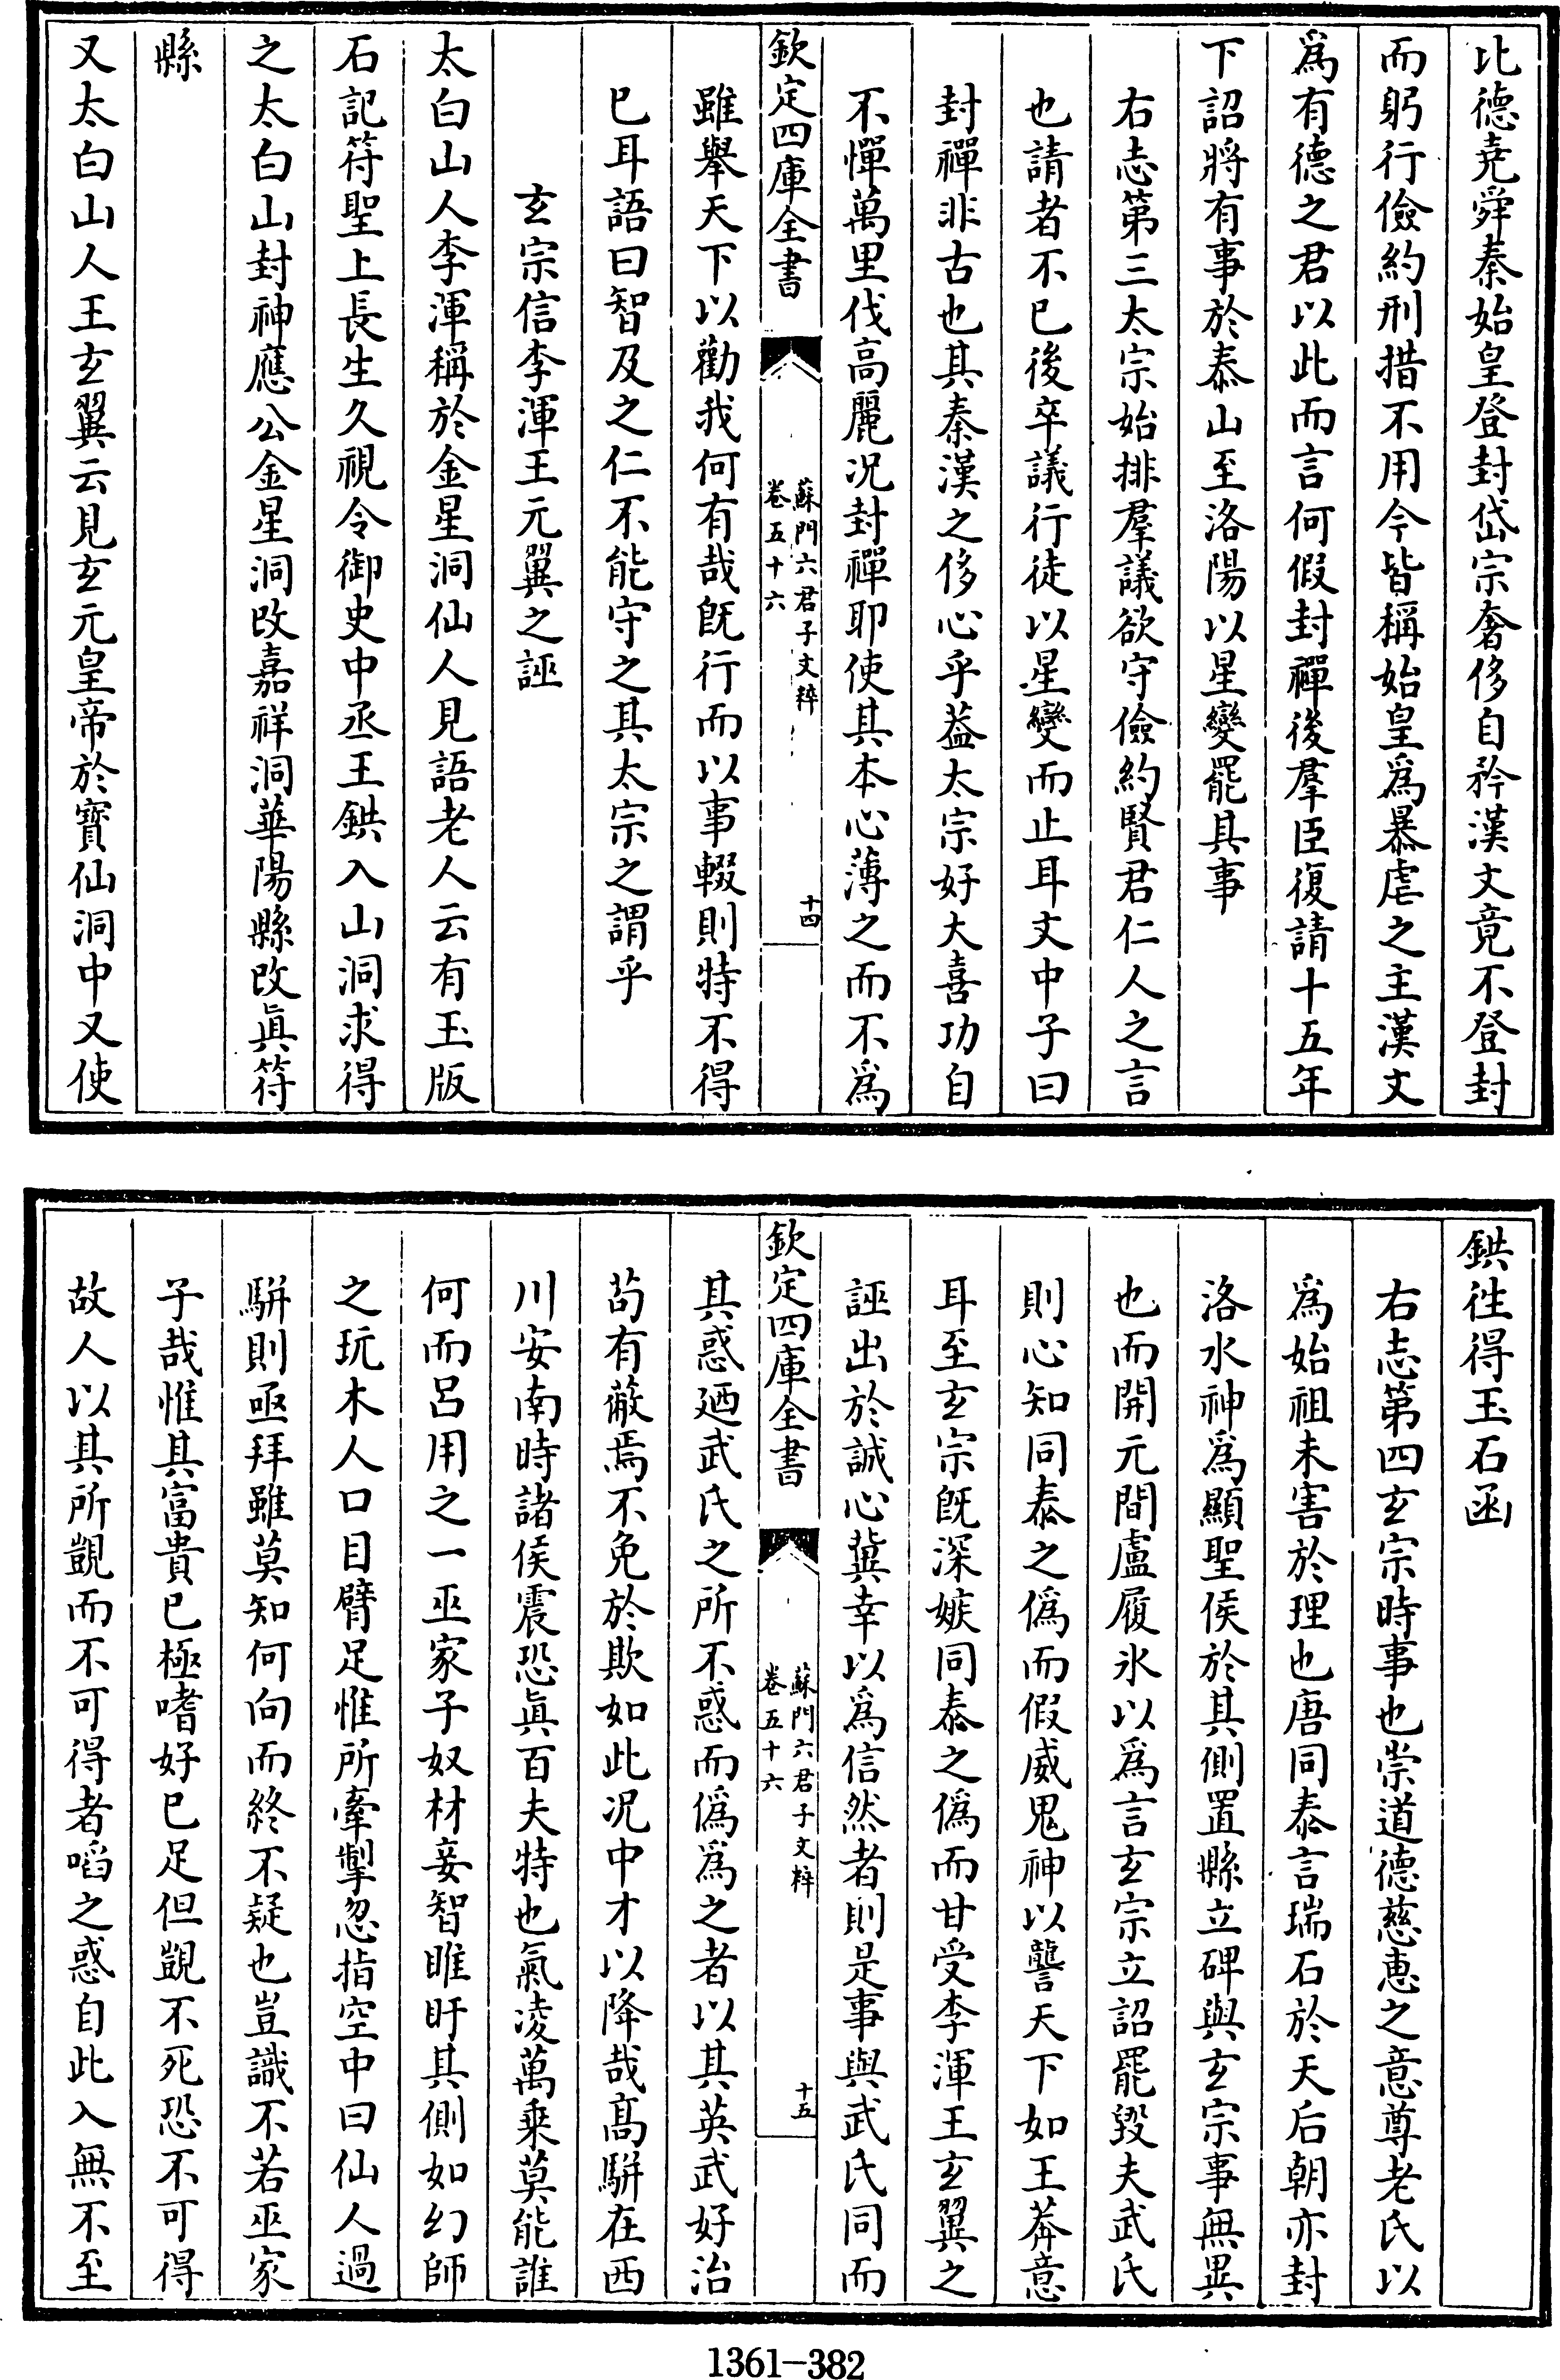 比德堯舜秦始皇登封岱宗奢侈自矜漢文竟不登封
而躬行儉約刑措不用今皆稱始皇爲暴虐之主漢文
爲有德之君以此而言何假封禪後羣臣復請十五年
下詔將有事於泰山至洛陽以星變罷其事
右志第三太宗始排羣議欲守儉約賢君仁人之言
也請者不已後卒議行徒以星變而止耳文中子曰
封禪非古也其秦漢之侈心乎葢太宗好大喜功自
不憚萬里伐高麗况封禪耶使其本心薄之而不爲
欽定四庫全書
蘇門六君子文粹
卷五十六
十四
雖舉天下以勸我何有哉旣行而以事輟則特不得
已耳語曰智及之仁不能守之其太宗之謂乎
玄宗信李渾王元翼之誣
太白山人李渾稱於金星洞仙人見語老人云有玉版
石記符聖上長生久視令御史中丞王鉷入山洞求得
之太白山封神應公金星洞改嘉祥洞華陽縣改眞符
縣
又太白山人王玄翼云見玄元皇帝於寳仙洞中又使
鉷往得玉石函
右志第四玄宗時事也崇道德慈恵之意尊老氏以
爲始祖未害於理也唐同泰言瑞石於天后朝亦封
洛水神爲顯聖侯於其側置縣立碑與玄宗事無異
也而開元間盧履氷以爲言玄宗立詔罷毀夫武氏
則心知同泰之僞而假威鬼神以讋天下如王莽意
耳至玄宗旣深嫉同泰之僞而甘受李渾王玄翼之
誣出於誠心冀幸以爲信然者則是事與武氏同而
欽定四庫全書
蘇門六君子文粹
卷五十六
十五
其惑廼武氏之所不惑而僞爲之者以其英武好治
苟有蔽焉不免於欺如此况中才以降哉髙駢在西
川安南時諸侯震恐眞百夫特也氣凌萬乘莫能誰
何而呂用之一巫家子奴材妾智睢盱其側如幻師
之玩木人口目臂足惟所牽掣忽指空中曰仙人過
駢則亟拜雖莫知何向而終不疑也豈識不若巫家
子哉惟其富貴已極嗜好已足但覬不死恐不可得
故人以其所覬而不可得者啗之惑自此入無不至
1361-382